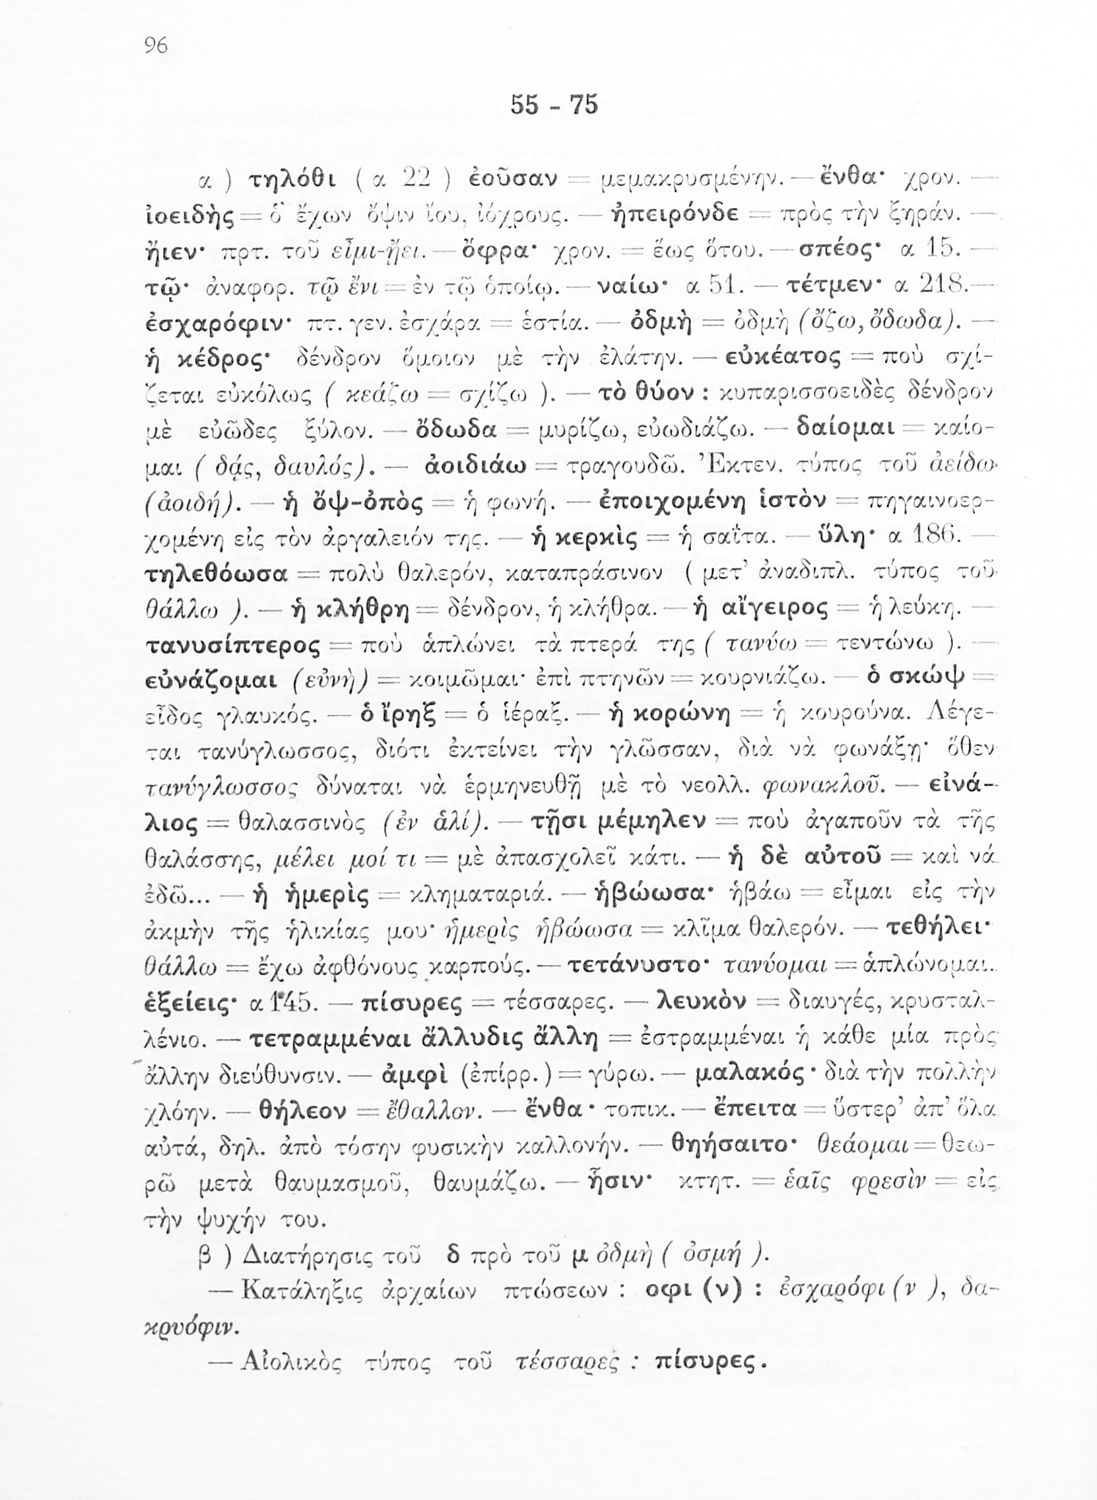 96
55 - 75
α ) τηλόθι ( α 22 ) ἐοῦσαν = μεμακρυσμένην. — ἔνθα· χρον. —
ἰοειδὴς = ὁ ἔχων ὄψιν ἴου, ἰόχρους. — ἠπειρόνδε = πρὸς τὴν ξηράν. —
ἤιεν· πρτ. τοῦ εἶμι-ᾔει. — ὄφρα· χρον. = ἕως ὅτου. — σπέος· α 15. —
τῷ· ἀναφορ. τῷ ἔνι = ἐν τῷ ὁποίῳ. — ναίω· α 51. — τέτμεν· α 218. —
ἐσχαρόφιν· πτ. γεν. ἐσχάρα = ἑστία. — ὀδμὴ = ὀδμὴ (ὄζω, ὄδωδα). —
ἡ κέδρος· δένδρον ὅμοιον μὲ τὴν ἐλάτην. — εὐκέατος = ποὺ σχί-
ζεται εὐκόλως ( κεάζω = σχίζω ). — τὸ θύον : κυπαρισσοειδὲς δένδρον
μὲ εὐῶδες ξύλον. — ὄδωδα = μυρίζω, εὐωδιάζω. — δαίομαι = καίο-
μαι ( δᾴς, δαυλός). — ἀοιδιάω = τραγουδῶ. Ἐκτεν. τύπος τοῦ ἀείδω·
(ἀοιδή). — ἡ ὄψ-ὀπὸς = ἡ φωνή. — ἐποιχομένη ἱστὸν = πηγαινοερ-
χομένη εἰς τὸν ἀργαλειόν της. — ἡ κερκὶς = ἡ σαΐτα. — ὕλη· α 186. —
τηλεθόωσα = πολὺ θαλερόν, καταπράσινον ( μετ' ἀναδιπλ. τύπος τοῦ
θάλλω ). — ἡ κλήθρη = δένδρον, ἡ κλήθρα. — ἡ αἴγειρος = ἡ λεύκη. —
τανυσίπτερος = ποὺ ἁπλώνει τὰ πτερά της ( τανύω = τεντώνω ). —
εὐνάζομαι (εὐνὴ) = κοιμῶμαι· ἐπὶ πτηνῶν = κουρνιάζω. — ὁ σκὼψ =
εἶδος γλαυκός. — ὁ ἴρηξ = ὁ ἱέραξ. — ἡ κορώνη = ἡ κουρούνα. Λέγε-
ται τανύγλωσσος, διότι ἐκτείνει τὴν γλῶσσαν, διὰ νὰ φωνάξῃ· ὅθεν
τανύγλωσσος δύναται νὰ ἑρμηνευθῇ μὲ τὸ νεολλ. φωνακλοῦ. — εἰνά-
λιος = θαλασσινὸς (ἐν ἁλί). — τῇσι μέμηλεν = ποὺ ἀγαποῦν τὰ τῆς
θαλάσσης, μέλει μοί τι = μὲ ἀπασχολεῖ κάτι. — ἡ δὲ αὐτοῦ = καὶ νά
ἐδῶ... — ἡ ἡμερὶς = κληματαριά. — ἡβώωσα· ἡβάω = εἶμαι εἰς τὴν
ἀκμὴν τῆς ἡλικίας μου· ἡμερὶς ἡβώωσα = κλῖμα θαλερόν. — τεθήλει·
θάλλω = ἔχω ἀφθόνους καρπούς. — τετάνυστο· τανύομαι = ἁπλώνομαι.
ἑξείεις· α 145. — πίσυρες = τέσσαρες. — λευκὸν = διαυγές, κρυσταλ-
λένιο. — τετραμμέναι ἄλλυδις ἄλλη = ἐστραμμέναι ἡ κάθε μία πρὸς
ἄλλην διεύθυνσιν. — ἀμφὶ (ἐπίρρ.) = γύρω. — μαλακός· διὰ τὴν πολλὴν
χλόην. — θήλεον = ἔθαλλον. — ἔνθα· τοπικ. — ἔπειτα = ὕστερ' ἀπ' ὅλα
αὐτά, δηλ. ἀπὸ τόσην φυσικὴν καλλονήν. — θηήσαιτο· θεάομαι = θεω-
ρῶ μετὰ θαυμασμοῦ, θαυμάζω. — ᾗσιν· κτητ. = ἑαῖς φρεσὶν = εἰς
τὴν ψυχήν του.
β ) Διατήρησις τοῦ δ πρὸ τοῦ μ ὀδμὴ ( ὀσμή ).
— Κατάληξις ἀρχαίων πτώσεων : οφι (ν) : ἐσχαρόφι (ν ), δα-
κρυόφιν.
— Αἰολικὸς τύπος τοῦ τέσσαρες : πίσυρες.